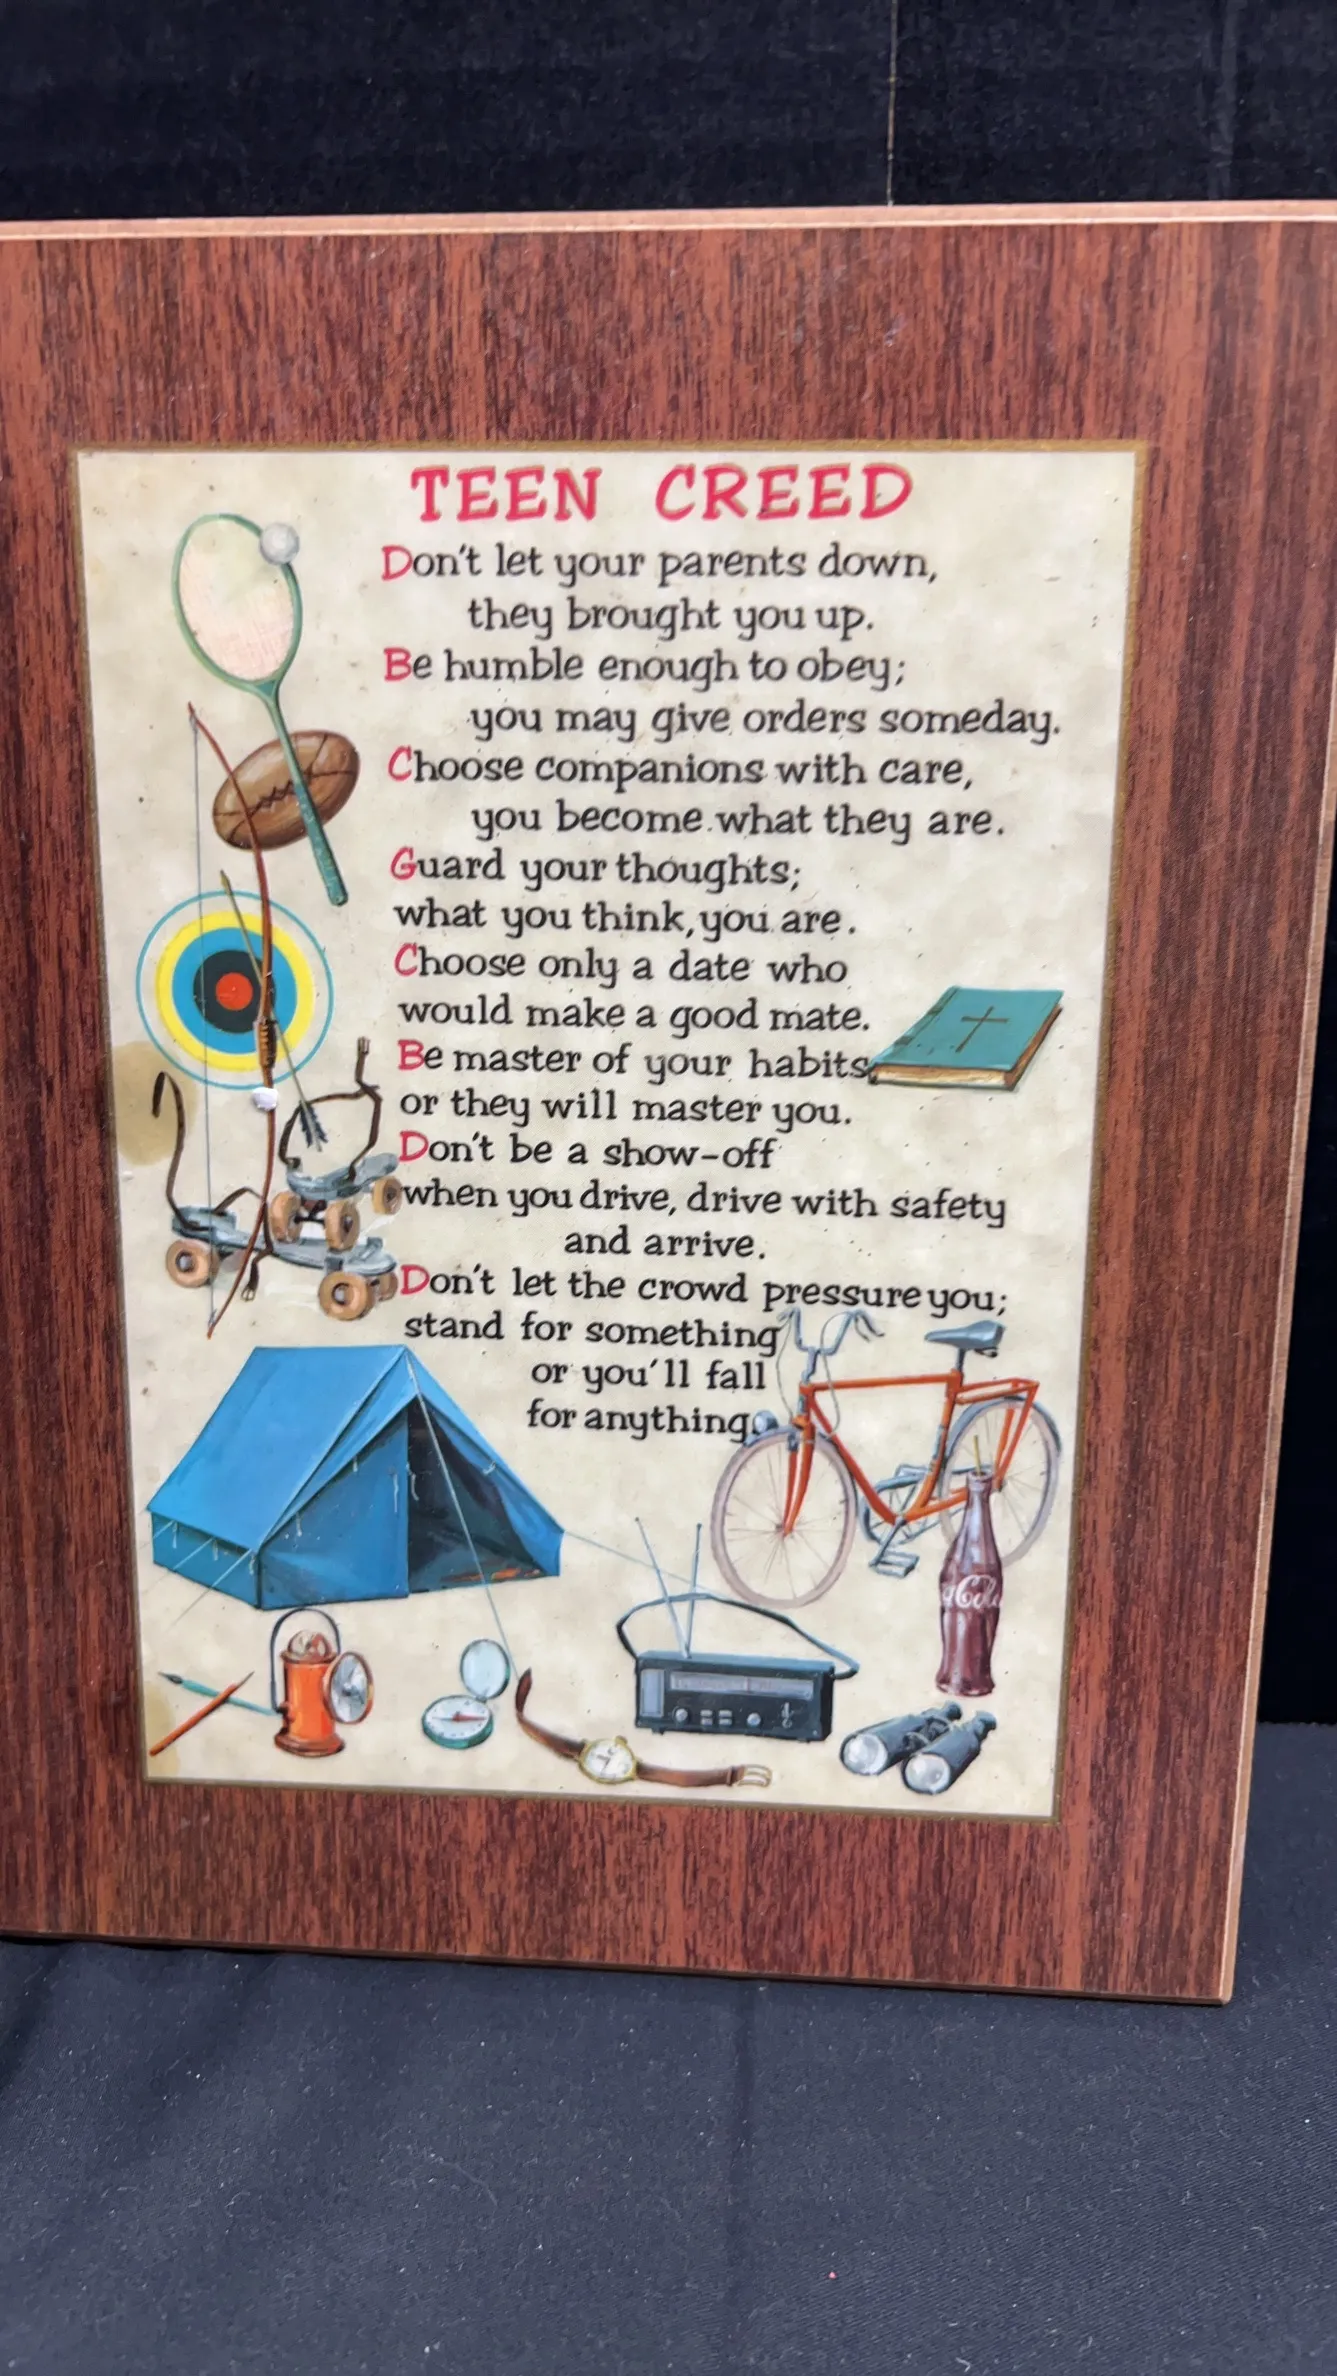 TEEN CREED
Don't let your parents down,
they brought you up.
Be humble enough to obey;
you may give orders someday.
Choose companions with care,
you become what they are.
Guard your thoughts;
what you think, you are.
Choose only a date who
would make a good mate.
Be master of your habits,
or they will master you.
Don't be a show-off
when you drive, drive with safety
and arrive.
Don't let the crowd pressure you;
stand for something
or you'll fall
for anything.